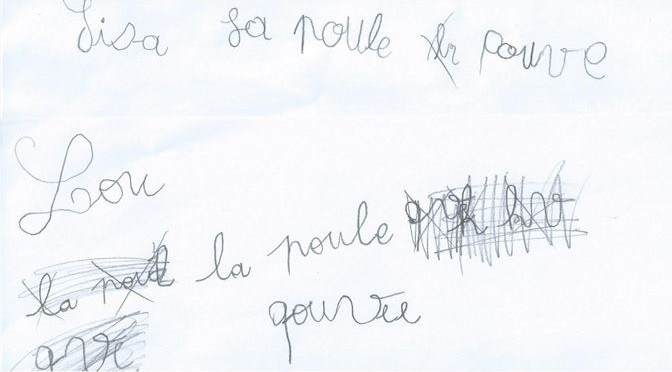 Lisa La poule pouve
Lou
la poule
qouvée